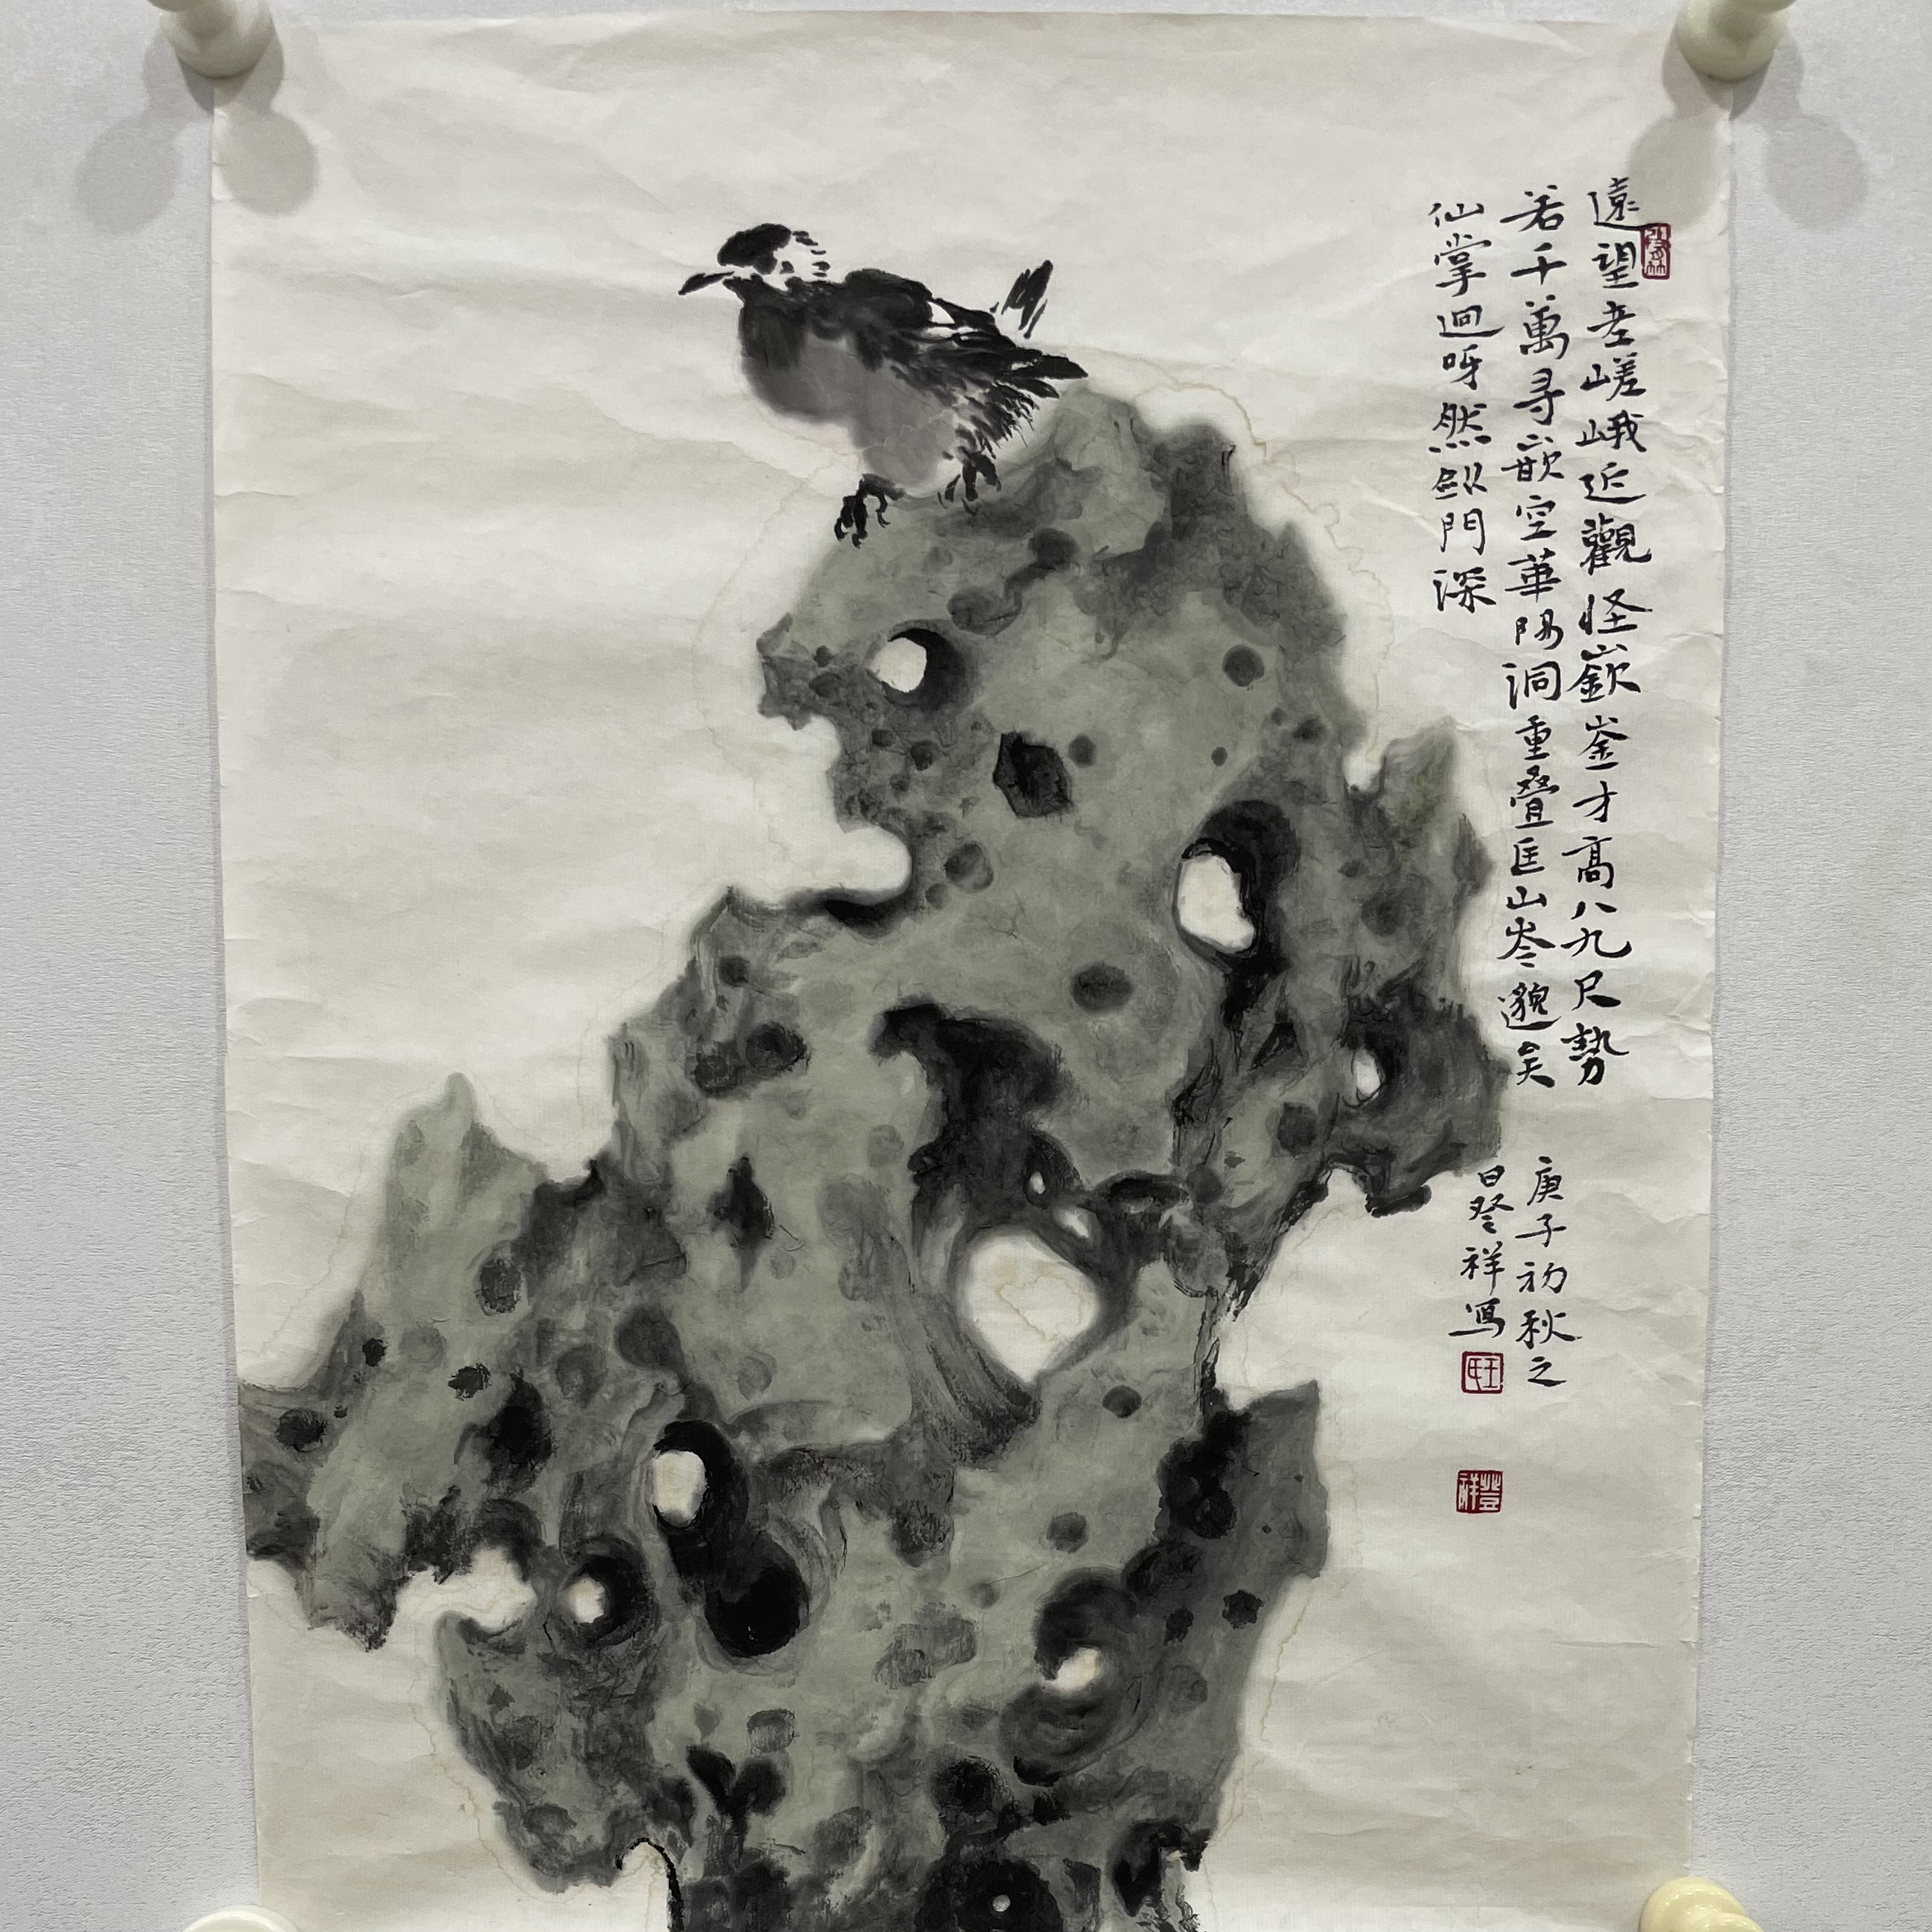 遠望老嵯峨近觀怪嶔崟才高八九尺勢
若千萬寻嵌空華陽洞重叠匡山岑邈矣
仙掌迥呀然劍門深
庚子初秋之
日登祥寫
王氏
登祥